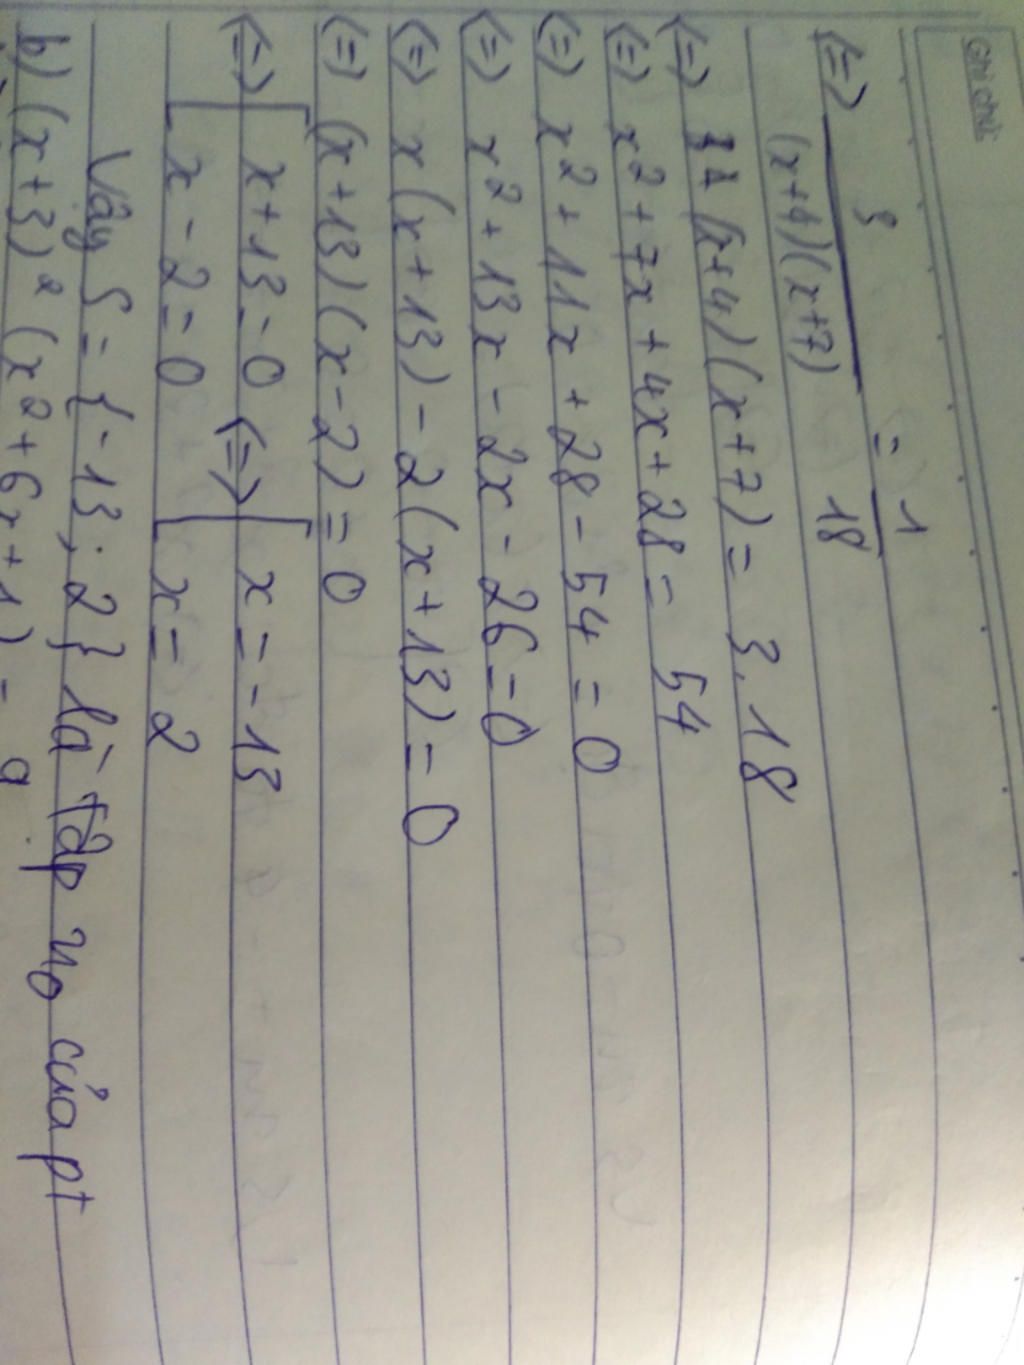 Ghi chú
⇔ 3/((x+4)(x+7)) = 1/18
⇔ (x+4)(x+7) = 3.18
⇔ x² + 7x + 4x + 28 = 54
⇔ x² + 11x + 28 - 54 = 0
⇔ x² + 13x - 2x - 26 = 0
⇔ x(x+13) - 2(x+13) = 0
⇔ (x+13)(x-2) = 0
⇔ [ x+13 = 0 ⇔ [ x = -13
[ x - 2 = 0 [ x = 2
Vậy S = {-13; 2} là tập no của pt
b) (x+3)² (x² + 6x + 1) = 9